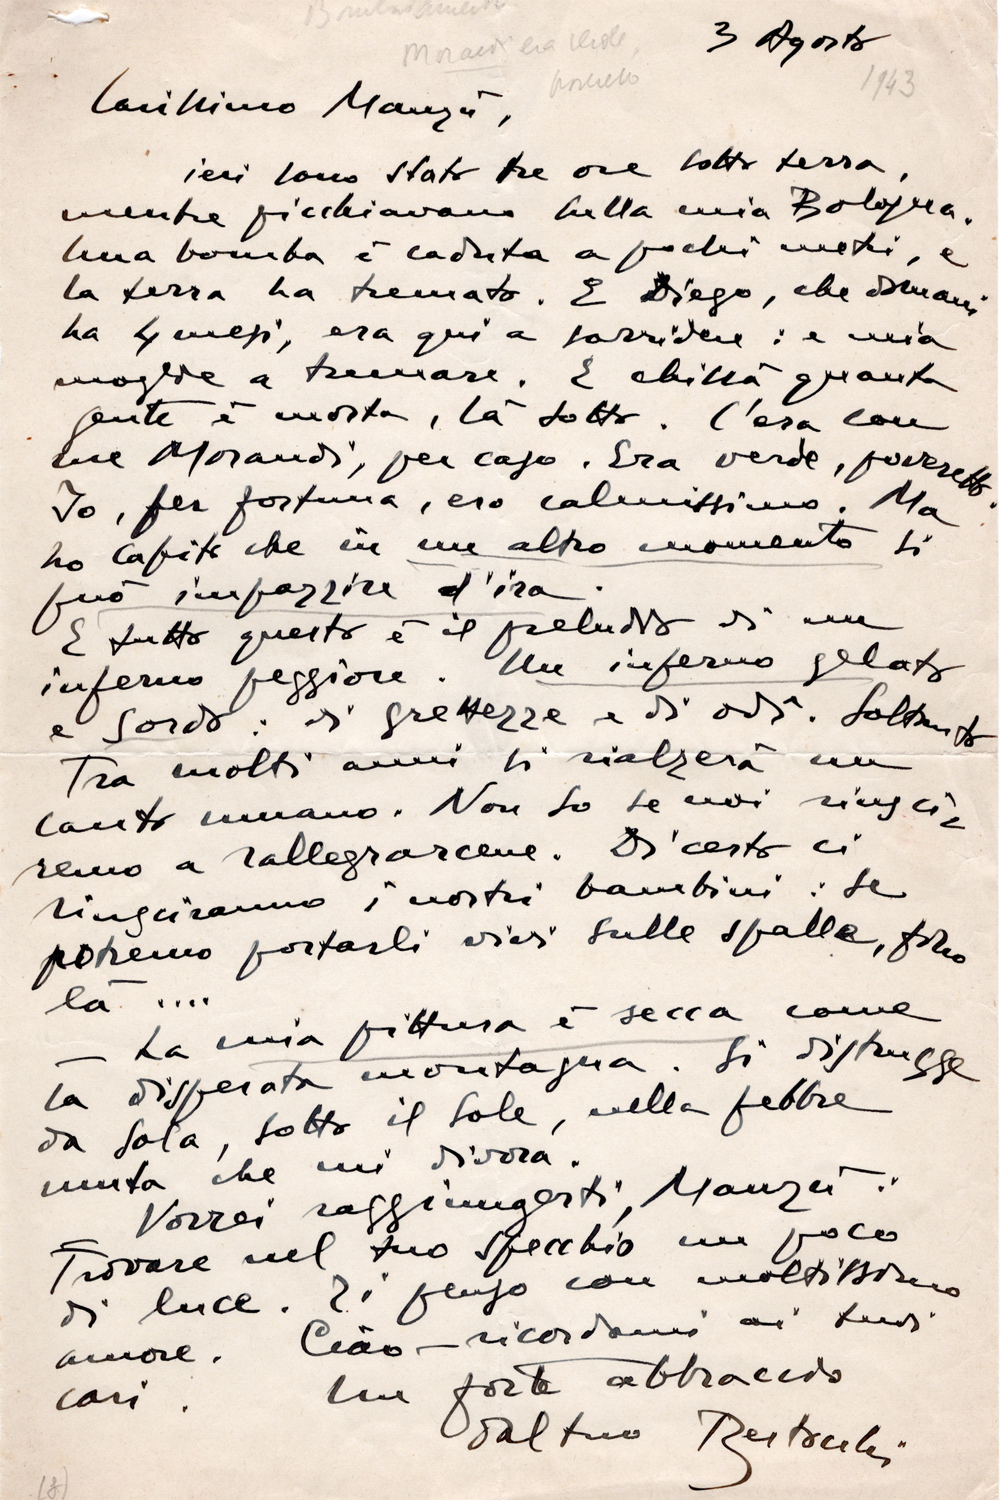 Bombardamento
Morandi era verde,
poveretto
3 Agosto
1943
Carissimo Manzù,
ieri sono stato tre ore sotto terra,
mentre picchiavano sulla mia Bologna.
Una bomba è caduta a pochi metri, e
la terra ha tremato. E Diego, che domani
ha 4 mesi, era qui a sorridere : e mia
moglie a tremare. E chissà quanta
gente è morta, là sotto. C'era con
me Morandi, per caso. Era verde, poveretto.
Io, per fortuna, ero calmissimo. Ma
ho capito che in un altro momento si
può impazzire d'ira.
E tutto questo è il preludio di un
inferno peggiore. Un inferno gelato
e sordo : di grettezze e di odî. Soltanto
Tra molti anni si rialzerà un
canto umano. Non so se noi riusci-
remo a rallegrarcene. Di certo ci
riusciranno i nostri bambini : se
potremo portarli vivi sulle spalle, fino
là ....
— La mia pittura è secca come
la disperata montagna. Si distrugge
da sola, sotto il sole, nella febbre
muta che mi divora.
Vorrei raggiungerti, Manzù :
Trovare nel tuo specchio un poco
di luce. Ti penso con moltissimo
amore. Ciao — ricordami ai tuoi
cari. Un forte abbraccio
dal tuo Bertocchi
(8)